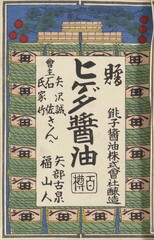 贈
銚子醤油株式會社醸造
ヒゲタ醤油
百樽
會主
矢沢誠
石佐
氏家竹
さんへ
矢部古泉
福山人